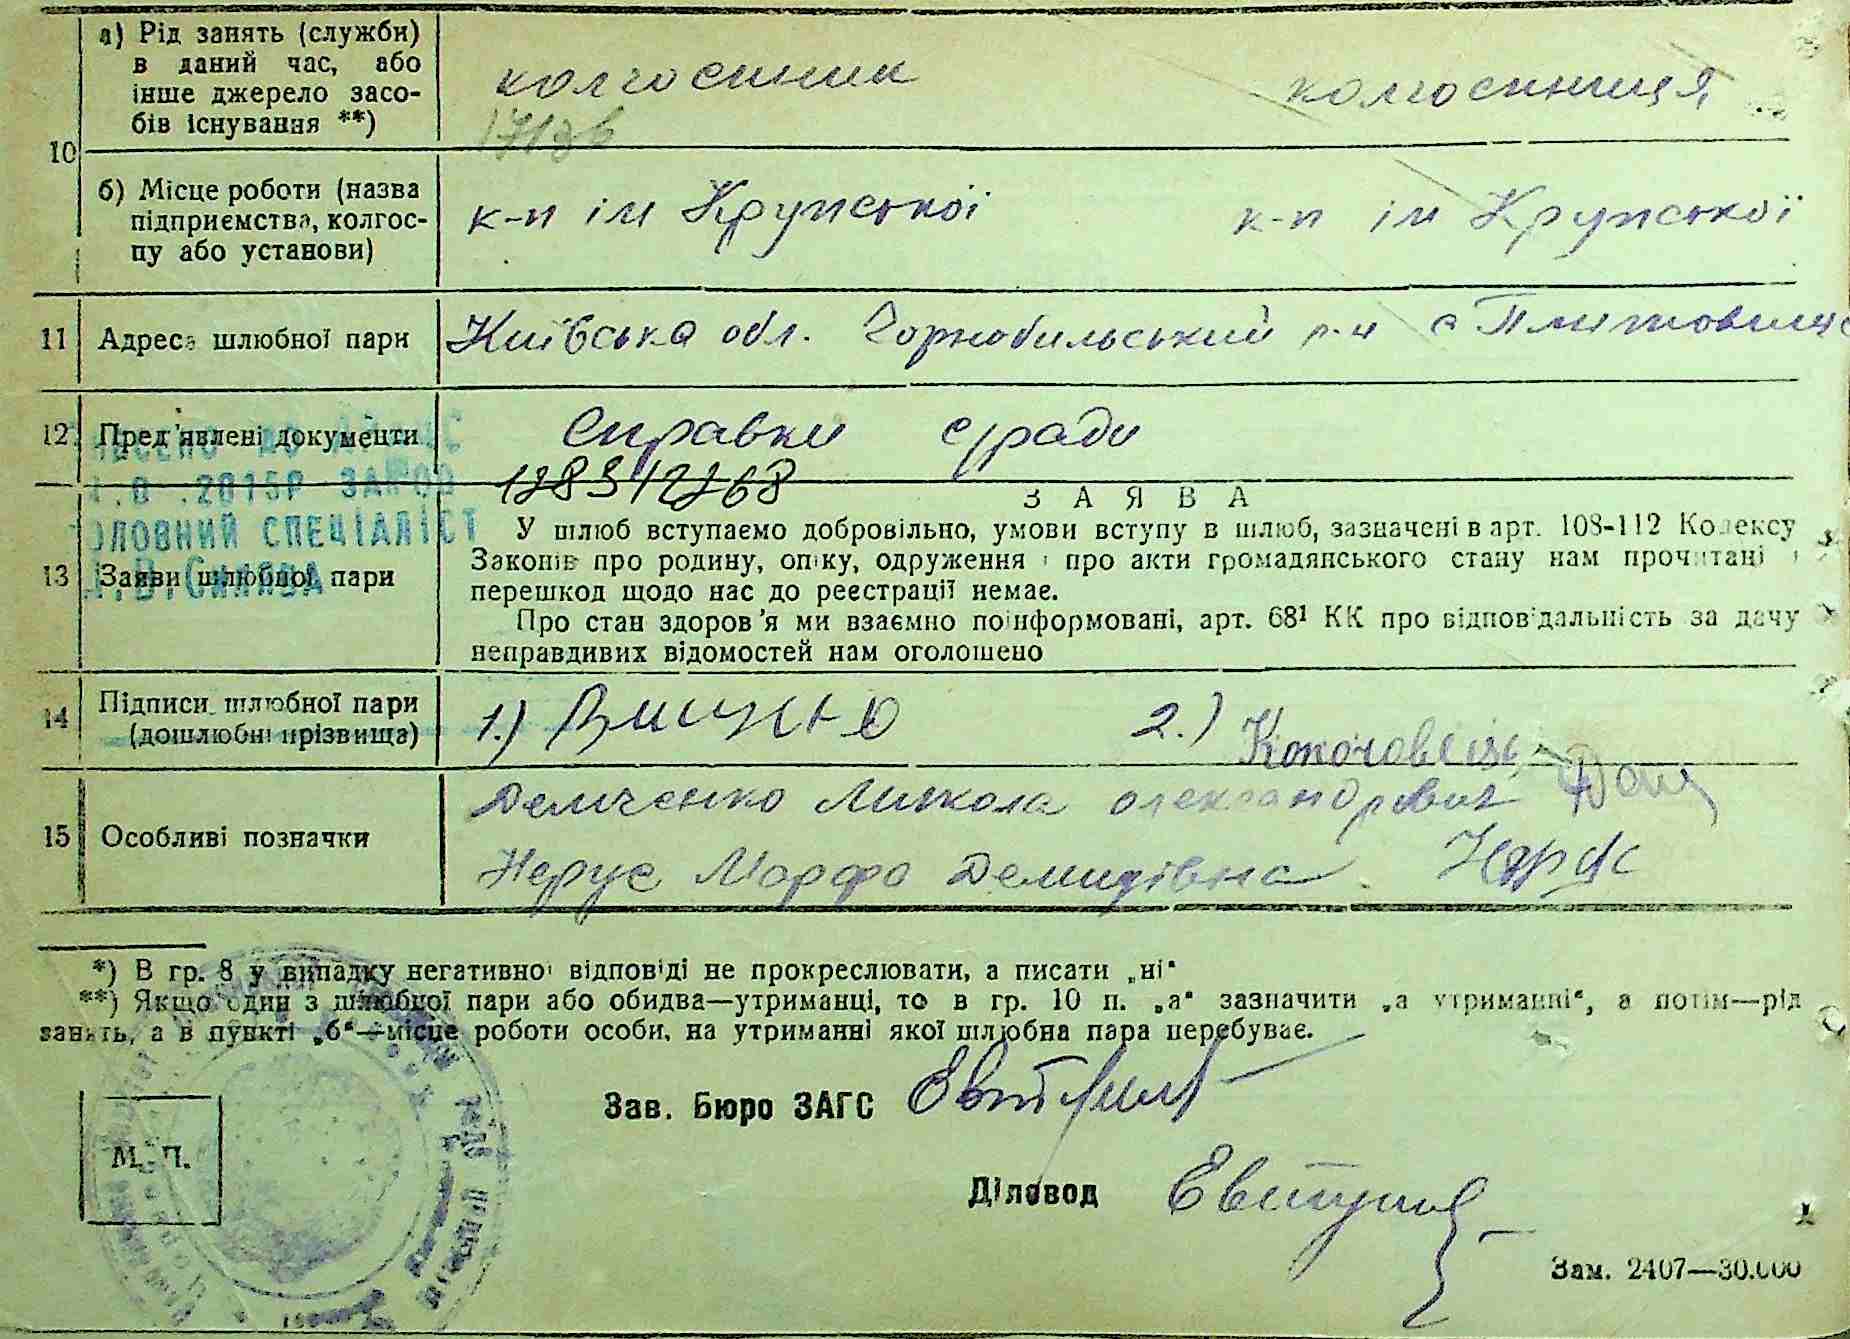 10
а) Рід занять (служби) в даний час, або інше джерело засобів існування **)
колгоспник
колгоспниця
б) Місце роботи (назва підприємства, колгоспу або установи)
к-п ім Крупської
к-п ім Крупської
11 Адреса шлюбної пари
Київська обл. Чорнобильський р-н с
12 Пред'явлені документи
Справки с/ради
.2015Р
ГОЛОВНИЙ СПЕЦІАЛІСТ
ЗАЯВА
13 Заяви шлюбної пари
У шлюб вступаємо добровільно, умови вступу в шлюб, зазначені в арт. 108-112 Кодексу
Законів про родину, опіку, одруження і про акти громадянського стану нам прочитані і
перешкод щодо нас до реєстрації немає.
Про стан здоров'я ми взаємно поінформовані, арт. 68¹ КК про відповідальність за дачу
неправдивих відомостей нам оголошено
14 Підписи шлюбної пари (дошлюбні прізвища)
1.)
2.)
15 Особливі позначки
Демченко Микола Олександрович
Нерус Марфа Демидівна
*) В гр. 8 у випадку негативної відповіді не прокреслювати, а писати „ні"
**) Якщо один з шлюбної пари або обидва—утриманці, то в гр. 10 п. „а" зазначити „а утриманні", а потім—рід
занять, а в пункті „б"—місце роботи особи, на утриманні якої шлюбна пара перебуває.
Зав. Бюро ЗАГС
М. П.
Діловод
Зам. 2407—30.000